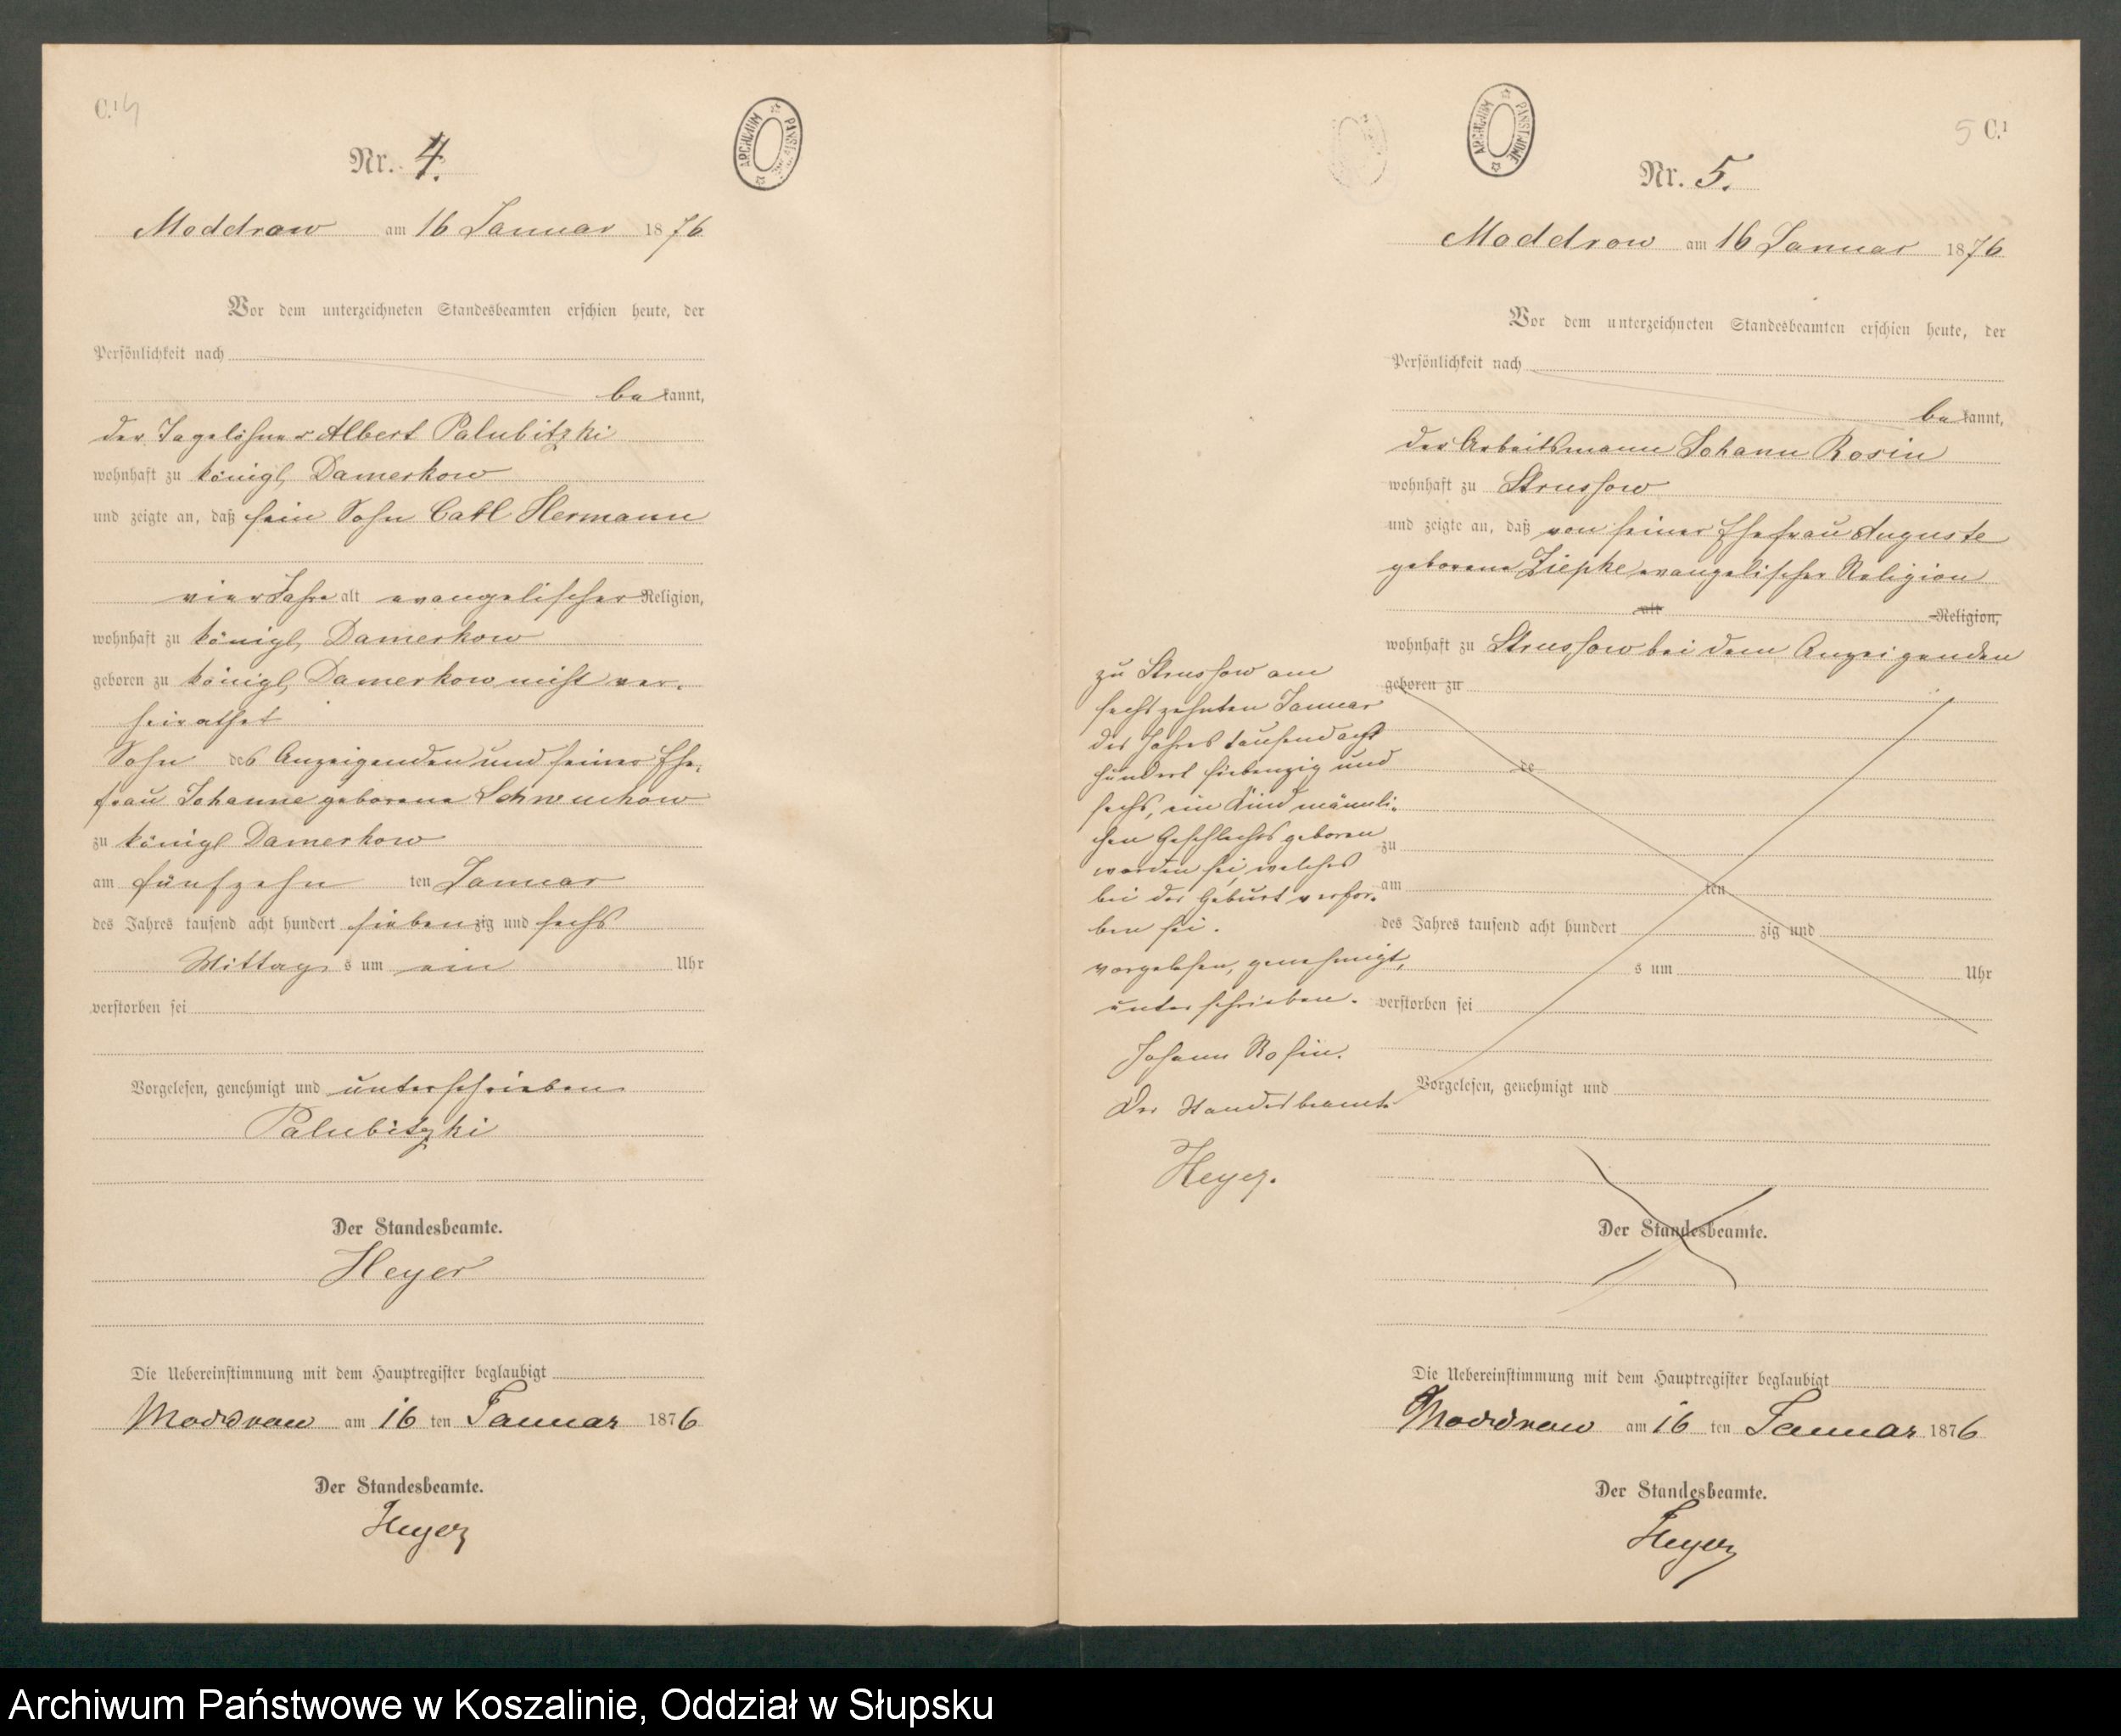 C.¹ 4
Nr. 4.
ARCHIWUM PAŃSTW
Moddrow am 16 Januar 1876
Vor dem unterzeichneten Standesbeamten erschien heute, der
Persönlichkeit nach
be kannt,
der Tagelöhner Albert Palubitzki
wohnhaft zu königl. Damerkow
und zeigte an, daß sein Sohn Carl Hermann
vier Jahre alt evangelischer Religion,
wohnhaft zu königl. Damerkow
geboren zu königl. Damerkow nicht ver-
heirathet
Sohn des Anzeigenden und seiner Ehe-
frau Johanne geborene Schwuchow
zu königl Damerkow
am fünfzehn ten Januar
des Jahres tausend acht hundert siebenzig und sechs
Mittags um ein Uhr
verstorben sei
Vorgelesen, genehmigt und unterschrieben
Palubitzki
Der Standesbeamte.
Heyer
Die Uebereinstimmung mit dem Hauptregister beglaubigt
Moddrow am 16 ten Januar 1876
Der Standesbeamte.
Heyer
5 C.¹
ARCHIWUM PAŃSTWOWE
Nr. 5.
Moddrow am 16 Januar 1876
Vor dem unterzeichneten Standesbeamten erschien heute, der
Persönlichkeit nach
be kannt,
der Arbeitsmann Johann Rosin
wohnhaft zu Strussow
und zeigte an, daß von seiner Ehefrau Auguste
geborene Ziepke evangelischer Religion
alt Religion,
wohnhaft zu Strussow bei dem Anzeigenden
zu Strussow am
sechszehnten Januar
des Jahres tausend acht
hundert siebenzig und
sechs, ein Kind männli-
chen Geschlechts geboren
worden sei, welches
bei der Geburt verstor-
ben sei.
vorgelesen, genehmigt,
unterschrieben.
Johann Rosin.
Der Standesbeamte
Heyer.
geboren zu
de
zu
am ten
des Jahres tausend acht hundert zig und
s um Uhr
verstorben sei
Vorgelesen, genehmigt und
Der Standesbeamte.
Die Uebereinstimmung mit dem Hauptregister beglaubigt
Moddrow am 16 ten Januar 1876
Der Standesbeamte.
Heyer
Archiwum Państwowe w Koszalinie, Oddział w Słupsku